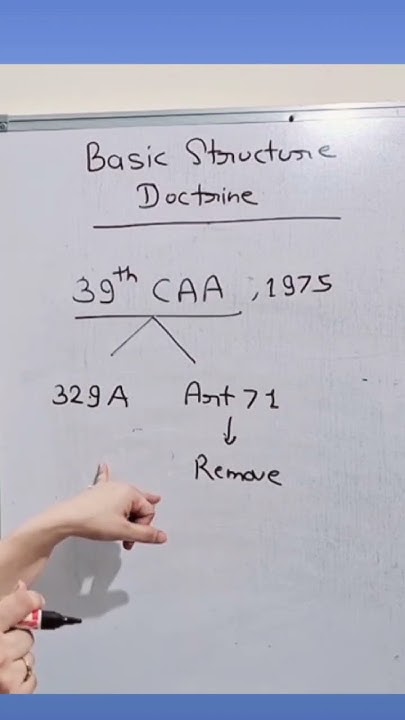 Basic Structure
Doctrine
39th CAA, 1975
329A Art 71
Remove